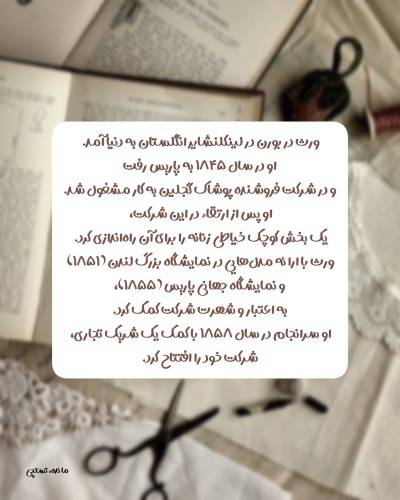 ورث در بورن در لینکلنشایر انگلستان به دنیا آمد.
او در سال ۱۸۴۵ به پاریس رفت
و در شرکت فروشنده پوشاک گجلین به کار مشغول شد.
او پس از ارتقاء در این شرکت،
یک بخش کوچک خیاطی زنانه را برای آن راه‌اندازی کرد.
ورث با ارائه مدل‌هایی در نمایشگاه بزرگ لندن (۱۸۵۱)
و نمایشگاه جهانی پاریس (۱۸۵۵)،
به اعتبار و شهرت شرکت کمک کرد.
او سرانجام در سال ۱۸۵۸ با کمک یک شریک تجاری،
شرکت خود را افتتاح کرد.